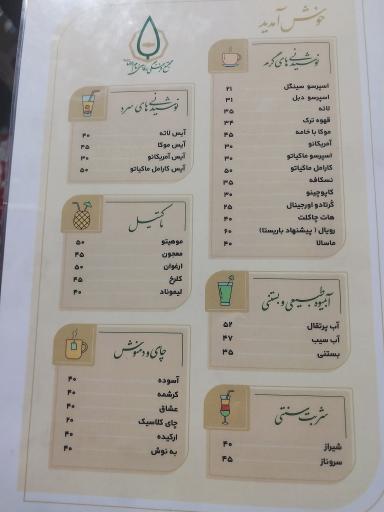 خوش آمدید
نوشیدنی های گرم
اسپرسو سینگل ۲۱
اسپرسو دبل ۳۱
لاته ۳۵
قهوه ترک ۳۴
موکا با خامه ۴۵
آمریکانو ۳۰
اسپرسو ماکیاتو ۳۰
کارامل ماکیاتو ۵۰
نسکافه ۳۵
کاپوچینو ۳۰
کُرتادو اورجینال ۲۵
هات چاکلت ۴۰
رویال ( پیشنهاد باریستا) ۶۰
ماسالا ۴۰
آبمیوه طبیعی و بستنی
آب پرتقال ۵۲
آب سیب ۴۷
بستنی ۳۵
شربت سنتی
شیراز ۴۰
سروناز ۴۵
نوشیدنی های سرد
آیس لاته ۴۰
آیس موکا ۴۵
آیس آمریکانو ۳۰
آیس کارامل ماکیاتو ۵۰
ماکتیل
موهیتو ۵۰
معجون ۴۵
ارغوان ۵۰
گلرخ ۴۵
لیموناد ۴۰
چای و دمنوش
آسوده ۴۰
کرشمه ۴۰
عشاق ۴۰
چای کلاسیک ۲۰
ارکیده ۴۰
به نوش ۴۰